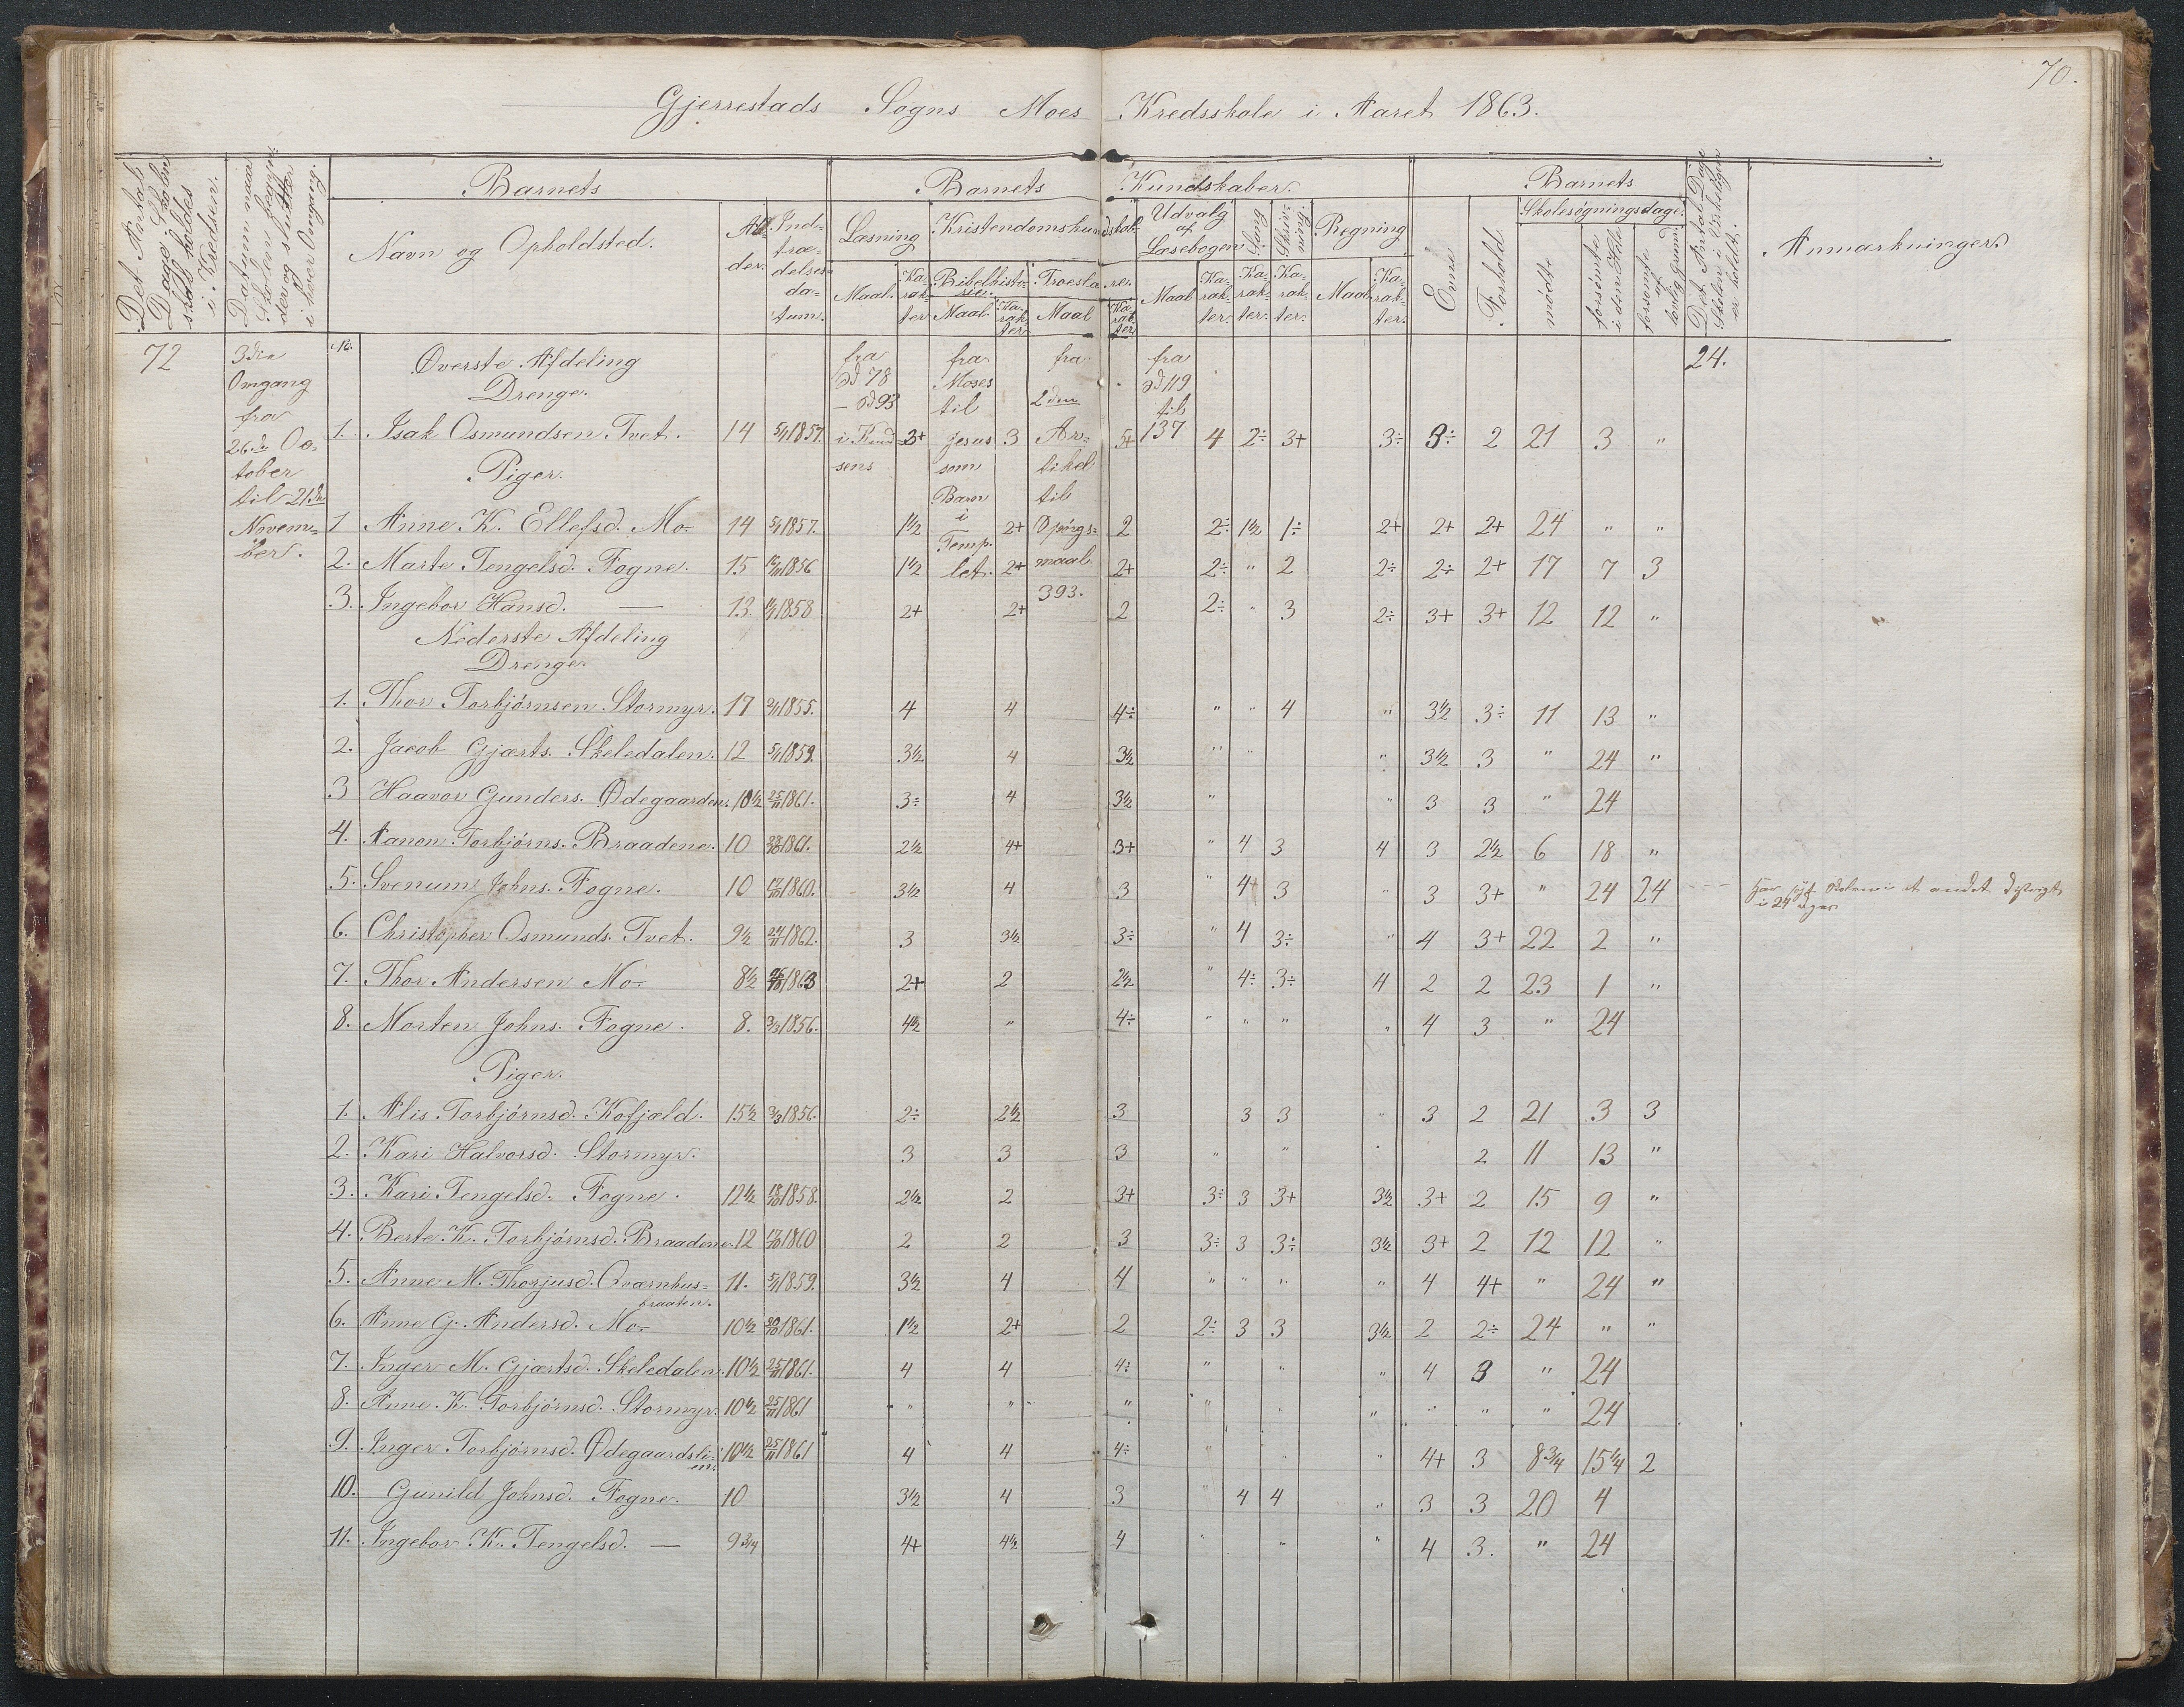 70.
Gjerrestads Sogns Moes Kredsskole i Aaret 1863.
Det Antal Dage Skolen skal holdes i Kredsen.
Datum naar Skolen begynder og slutter i hver Omgang.
Barnets
Navn og Opholdsted.
Alder.
Indtrædelsesdatum.
Barnets Kundskaber.
Læsning
Maal.
Karakter
Kristendomskundskab
Bibelhistorie.
Maal.
Karakter.
Troeslære.
Maal
Karakter
Udvalg af Læsebogen
Maal
Karakter.
Sang
Karakter.
Skrivning.
Karakter.
Regning
Maal
Karakter.
Barnets
Evne
Forhold.
Skolesøgningsdage.
mødte
forsømte i det Hele
forsømte af lovlig grund.
Det Antal Dage Skolen i Virkeligheden er holdt.
Anmærkninger.
72
3die
Omgang
fra
26de Oc-
tober
til 21de
Novem-
ber.
No.
Øverste Afdeling
Drenge.
fra
Sd 78
– Sd 93
i Knud-
sens
fra
Moses
til
Jesus
som
Barn
i
Temp-
let.
fra
2den
Ar-
tikel
til
Spørgs-
maal
393.
fra
Sd 119
til
137
24.
1. Isak Osmundsen Tvet. 14 5/1 1857. 3+ 3 5+ 4 2÷ 3+ 3÷ 3÷ 2 21 3 "
Piger.
1 Anne K. Ellefsd. Mo- 14 5/1 1857. 1½ 2+ 2 2÷ 1½ 1÷ 2+ 2+ 2+ 24 " "
2. Marte Tengelsd. Fogne. 15 1856 1½ 2+ 2+ 2÷ " 2 2÷ 2÷ 2+ 17 7 3
3. Ingebor Hansd. — 13 1858 2+ 2+ 2 2÷ " 3 2÷ 3+ 3+ 12 12 "
Nederste Afdeling
Drenge.
1. Thor Torbjørnsen Stormyr. 17 1855. 4 4 4÷ " " 4 " 3½ 3÷ 11 13 "
2. Jacob Gjærts. Skeledalen. 12 5/1 1859. 3½ 4 3½ " " " 3½ 3 " 24 "
3 Haavor Gunders. Ødegaarden. 10½ 25/11 1861. 3÷ 4 3½ " " 3 3 " 24
4. Aanon Torbjørns. Braadene. 10 1861. 2½ 4+ 3+ " 4 3 4 3 2½ 6 18 "
5. Svenum Johns. Fogne. 10 17/10 1860. 3½ 4 3 " 4+ 3 " 3 3+ " 24 24 Har søgt Skolen i et andet Distrigt i 24 Dager
6. Christopher Osmunds. Tvet. 9½ 24/11 1862. 3 3½ 3÷ " 4 3÷ " 4 3+ 22 2 "
7. Thor Andersen Mo- 8½ 26/10 1863 2+ 2 2½ " 4÷ 3÷ 4 2 2 23 1 "
8. Morten Johns. Fogne. 8. 1856. 4½ " 4÷ " " " " 4 3 " 24
Piger.
1. Alis Torbjørnsd. Kofjæld. 15½ 1856. 2÷ 2½ 3 3 3 " 3 2 21 3 3
2. Kari Halvorsd. Stormyr. 3 3 3 " " 2 11 13 "
3. Kari Tengelsd. Fogne. 12½ 18/10 1858. 2½ 2 3+ 3÷ 3 3+ 3½ 3+ 2 15 9 "
4. Berte K. Torbjørnsd. Braadene. 12 17/10 1860 2 2 3 3÷ 3 3÷ 3½ 3+ 2 12 12 "
5. Anne M. Thorjusd. Qværnhus-
braaten. 11. 5/1 1859. 3½ 4 4 " " " " 4 4+ " 24 "
6. Anne G. Andersd. Mo- 10½ 1861. 1½ 2+ 2 2÷ 3 3 3½ 2 2÷ 24 " "
7. Inger M. Gjærtsd. Skeledalen. 10½ 25/11 1861. 4 4 4÷ " " " 4 3 " 24
8. Anne K. Torbjørnsd. Stormyr. 10½ 25/11 1861 " " " " " " " " " 24
9. Inger Torbjørnsd. Ødegaardsli-
en. 10½ 25/11 1861 4 4 4÷ " " " 4+ 3 8¾ 15¼ 2
10. Gunild Johnsd. Fogne. 10 3½ 4 3 " 4 4 " 3 3 20 4
11. Ingebor K. Tengelsd. — 9¾ 4+ 4½ 4 " " " 4 3. " 24